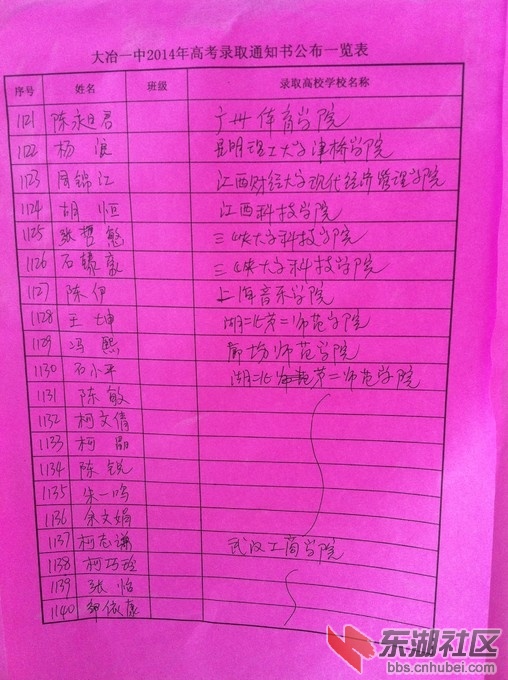 大冶一中2014年高考录取通知书公布一览表
序号 姓名 班级 录取高校学校名称
1121 陈永君 广州体育学院
1122 杨浪 昆明理工大学津桥学院
1123 周锦江 江西财经大学现代经济管理学院
1124 胡恒 江西科技学院
1125 张哲 三峡大学科技学院
1126 石 三峡大学科技学院
1127 陈伊 上海音乐学院
1128 王坤 湖北第二师范学院
1129 冯熙 廊坊师范学院
1130 石小平 湖北第二师范学院
1131 陈敏
1132 柯文倩
1133 柯
1134 陈锐
1135 朱一鸣
1136 余文娟
1137 柯志谦 武汉工商学院
1138 柯巧玲
1139 张怡
1140 依
东湖社区
bbs.cnhubei.com